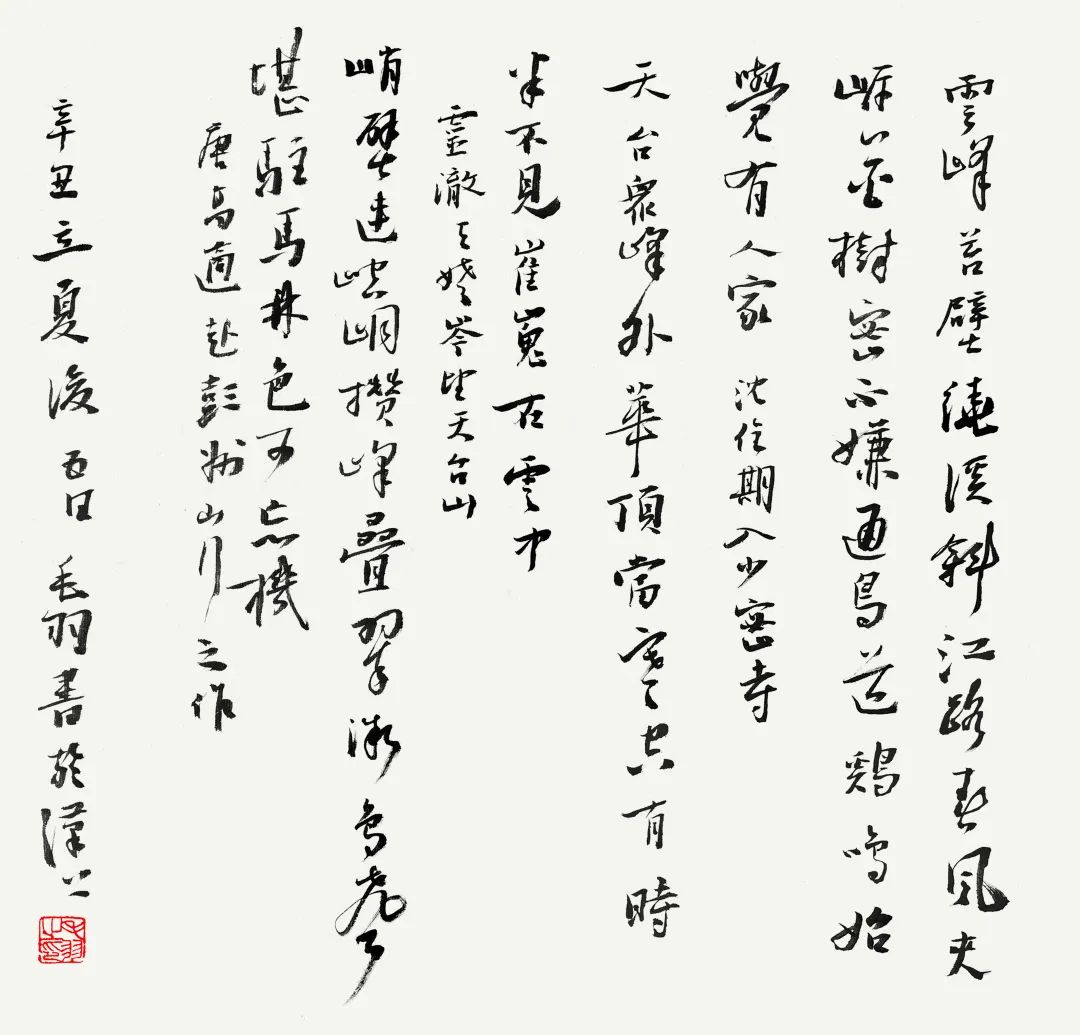 雲峰苔壁繞溪斜江路春風夾
岸花樹密不嫌通鳥道鷄鳴始
覺有人家 沈佺期入少密寺
天台衆峰外華頂當寒空有時
半不見崔嵬在雲中
靈澈天姥岑望天台山
峭壁連崆峒攢峰疊翠微鳥聲
堪駐馬林色可忘機
唐高適赴彭州山行之作
辛丑立夏後五日毛羽書於漢上